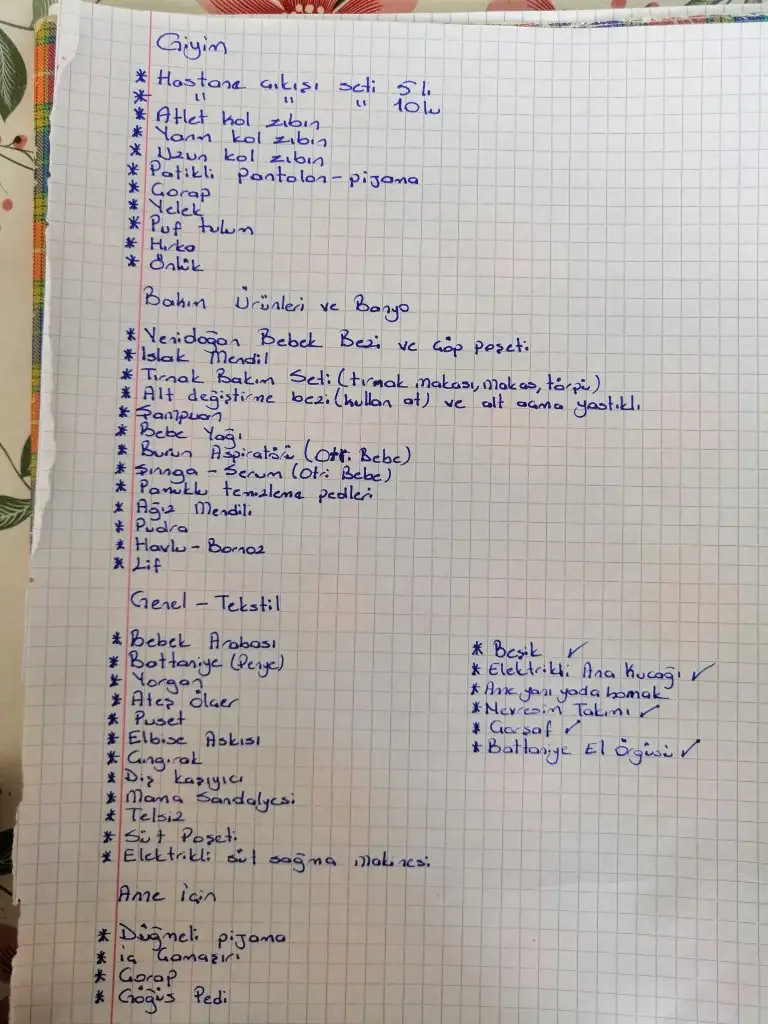 Giyim
* Hastane çıkışı seti 5 li
* " " " 10 lu
* Atlet kol zıbın
* Yarım kol zıbın
* Uzun kol zıbın
* Patikli pantolon - pijama
* Çorap
* Yelek
* Puf tulum
* Hırka
* Önlük
Bakım Ürünleri ve Banyo
* Yenidoğan Bebek Bezi ve Çöp poşeti
* Islak Mendil
* Tırnak Bakım Seti (tırnak makası, makas, törpü)
* Alt değiştirme bezi (kullan at) ve alt açma yastıklı
* Şampuan
* Bebe Yağı
* Burun Aspiratörü (Otri Bebe)
* Şırınga - Serum (Otri Bebe)
* Pamuklu temizleme pedleri
* Ağız Mendili
* Pudra
* Havlu - Bornoz
* Lif
Genel - Tekstil
* Bebek Arabası
* Battaniye (Penye)
* Yorgan
* Ateş Ölçer
* Puset
* Elbise Askısı
* Çıngırak
* Diş kaşıyıcı
* Mama Sandalyesi
* Telsiz
* Süt Poşeti
* Elektrikli süt sağma makinesi
* Beşik ✓
* Elektrikli Ana Kucağı ✓
* Anne yanı yada hamak
* Nevresim Takımı ✓
* Çarşaf ✓
* Battaniye El Örgüsü ✓
Anne için
* Düğmeli pijama
* iç Çamaşırı
* Çorap
* Göğüs Pedi